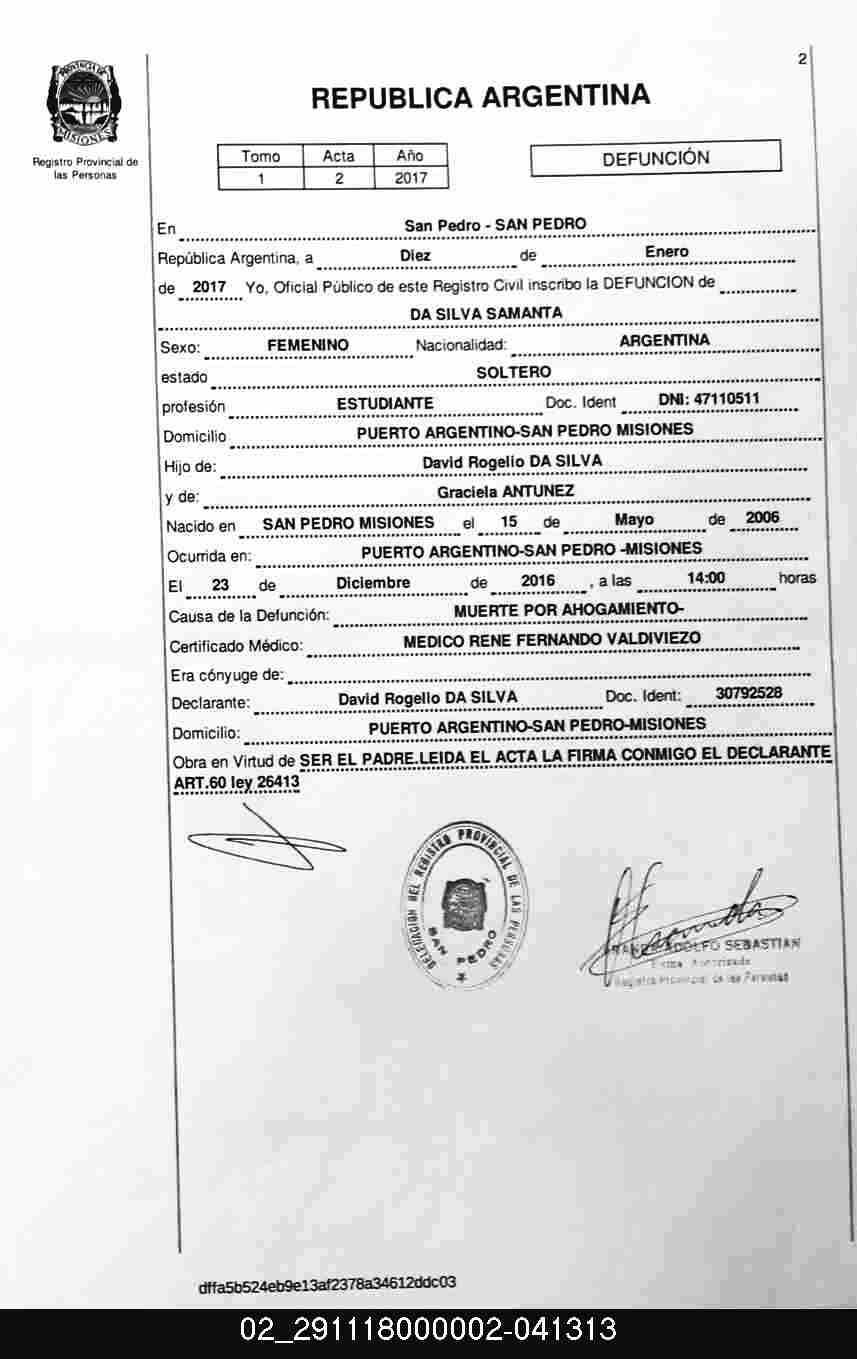 2
PROVINCIA DE
MISIONES
Registro Provincial de
las Personas
REPUBLICA ARGENTINA
Tomo Acta Año
1 2 2017
DEFUNCIÓN
En San Pedro - SAN PEDRO
República Argentina, a Diez de Enero
de 2017 Yo, Oficial Público de este Registro Civil inscribo la DEFUNCION de
DA SILVA SAMANTA
Sexo: FEMENINO Nacionalidad: ARGENTINA
estado SOLTERO
profesión ESTUDIANTE Doc. Ident DNI: 47110511
Domicilio PUERTO ARGENTINO-SAN PEDRO MISIONES
Hijo de: David Rogelio DA SILVA
y de: Graciela ANTUNEZ
Nacido en SAN PEDRO MISIONES el 15 de Mayo de 2006
Ocurrida en: PUERTO ARGENTINO-SAN PEDRO -MISIONES
El 23 de Diciembre de 2016 , a las 14:00 horas
Causa de la Defunción: MUERTE POR AHOGAMIENTO-
Certificado Médico: MEDICO RENE FERNANDO VALDIVIEZO
Era cónyuge de:
Declarante: David Rogelio DA SILVA Doc. Ident: 30792528
Domicilio: PUERTO ARGENTINO-SAN PEDRO-MISIONES
Obra en Virtud de SER EL PADRE.LEIDA EL ACTA LA FIRMA CONMIGO EL DECLARANTE
ART.60 ley 26413
DELEGACION DEL REGISTRO PROVINCIAL DE LAS PERSONAS
SAN PEDRO
ADOLFO SEBASTIAN
Firma Autorizada
Registro Provincial de las Personas
dffa5b524eb9e13af2378a34612ddc03
02_291118000002-041313